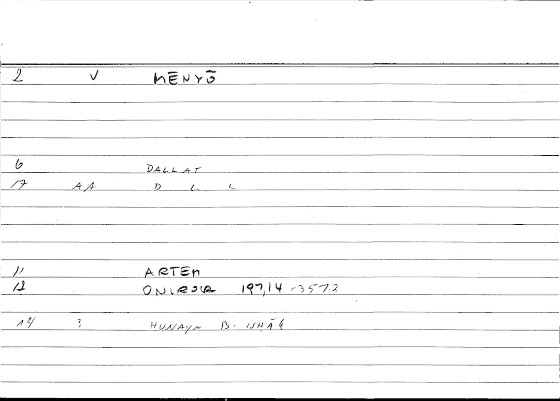 2 V MĒNYŌ
6 DALLAT
17 AA D L L
11 ARTEM
12 ONIROCR 197,14 -357.2
14 ? HUNAYN B. ISHĀQ